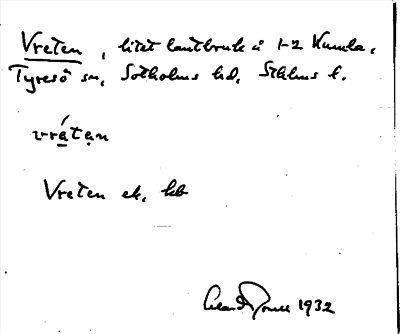 Vreten, litet lantbruk å 1-2 Kumla,
Tyresö sn, Sotholms hd, Sthlms l.
vrétạn
Vreten ek. kb
1932